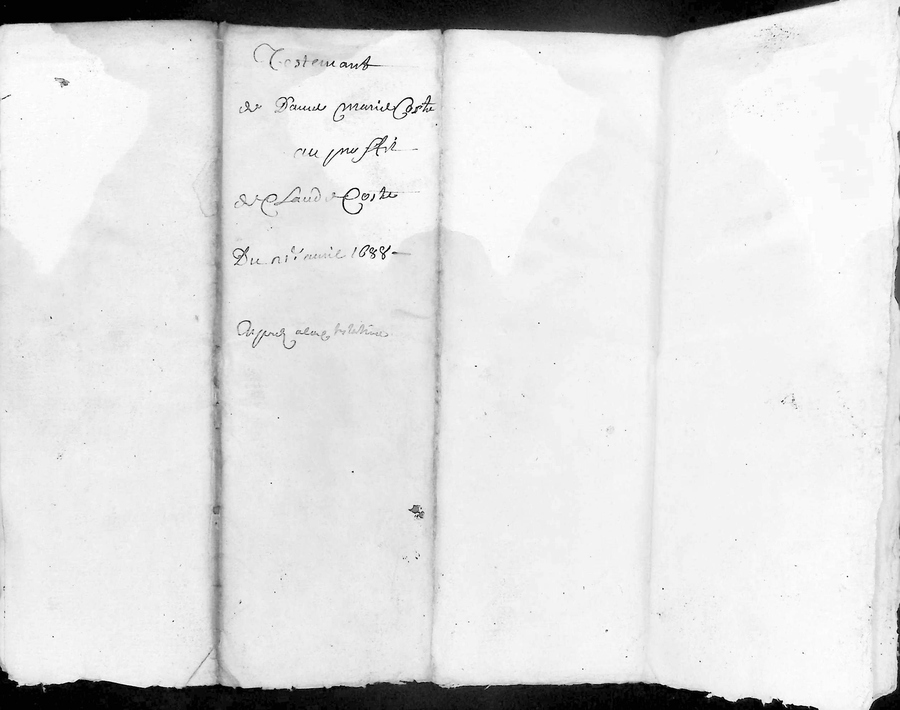 Testemant
de Dame Marie Coste
au proffit
de Claude Coste
Du avril 1688